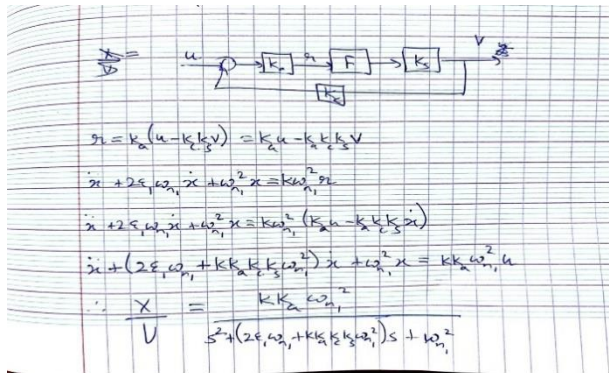 u → K_a → r → F → K_s → V
K_c
r = K_a(u - K_c K_s V) = K_a u - K_a K_c K_s V
ẍ + 2ξ₁ω_n₁ẋ + ω_n₁²x = kω_n₁²r
ẍ + 2ξ₁ω_n₁ẋ + ω_n₁²x = kω_n₁²(K_a u - K_a K_c K_s ẋ)
ẍ + (2ξ₁ω_n₁ + kK_a K_c K_s ω_n₁²)ẋ + ω_n₁²x = kK_a ω_n₁²u
∴ X/U = kK_a ω_n₁² / s² + (2ξ₁ω_n₁ + kK_a K_c K_s ω_n₁²)s + ω_n₁²